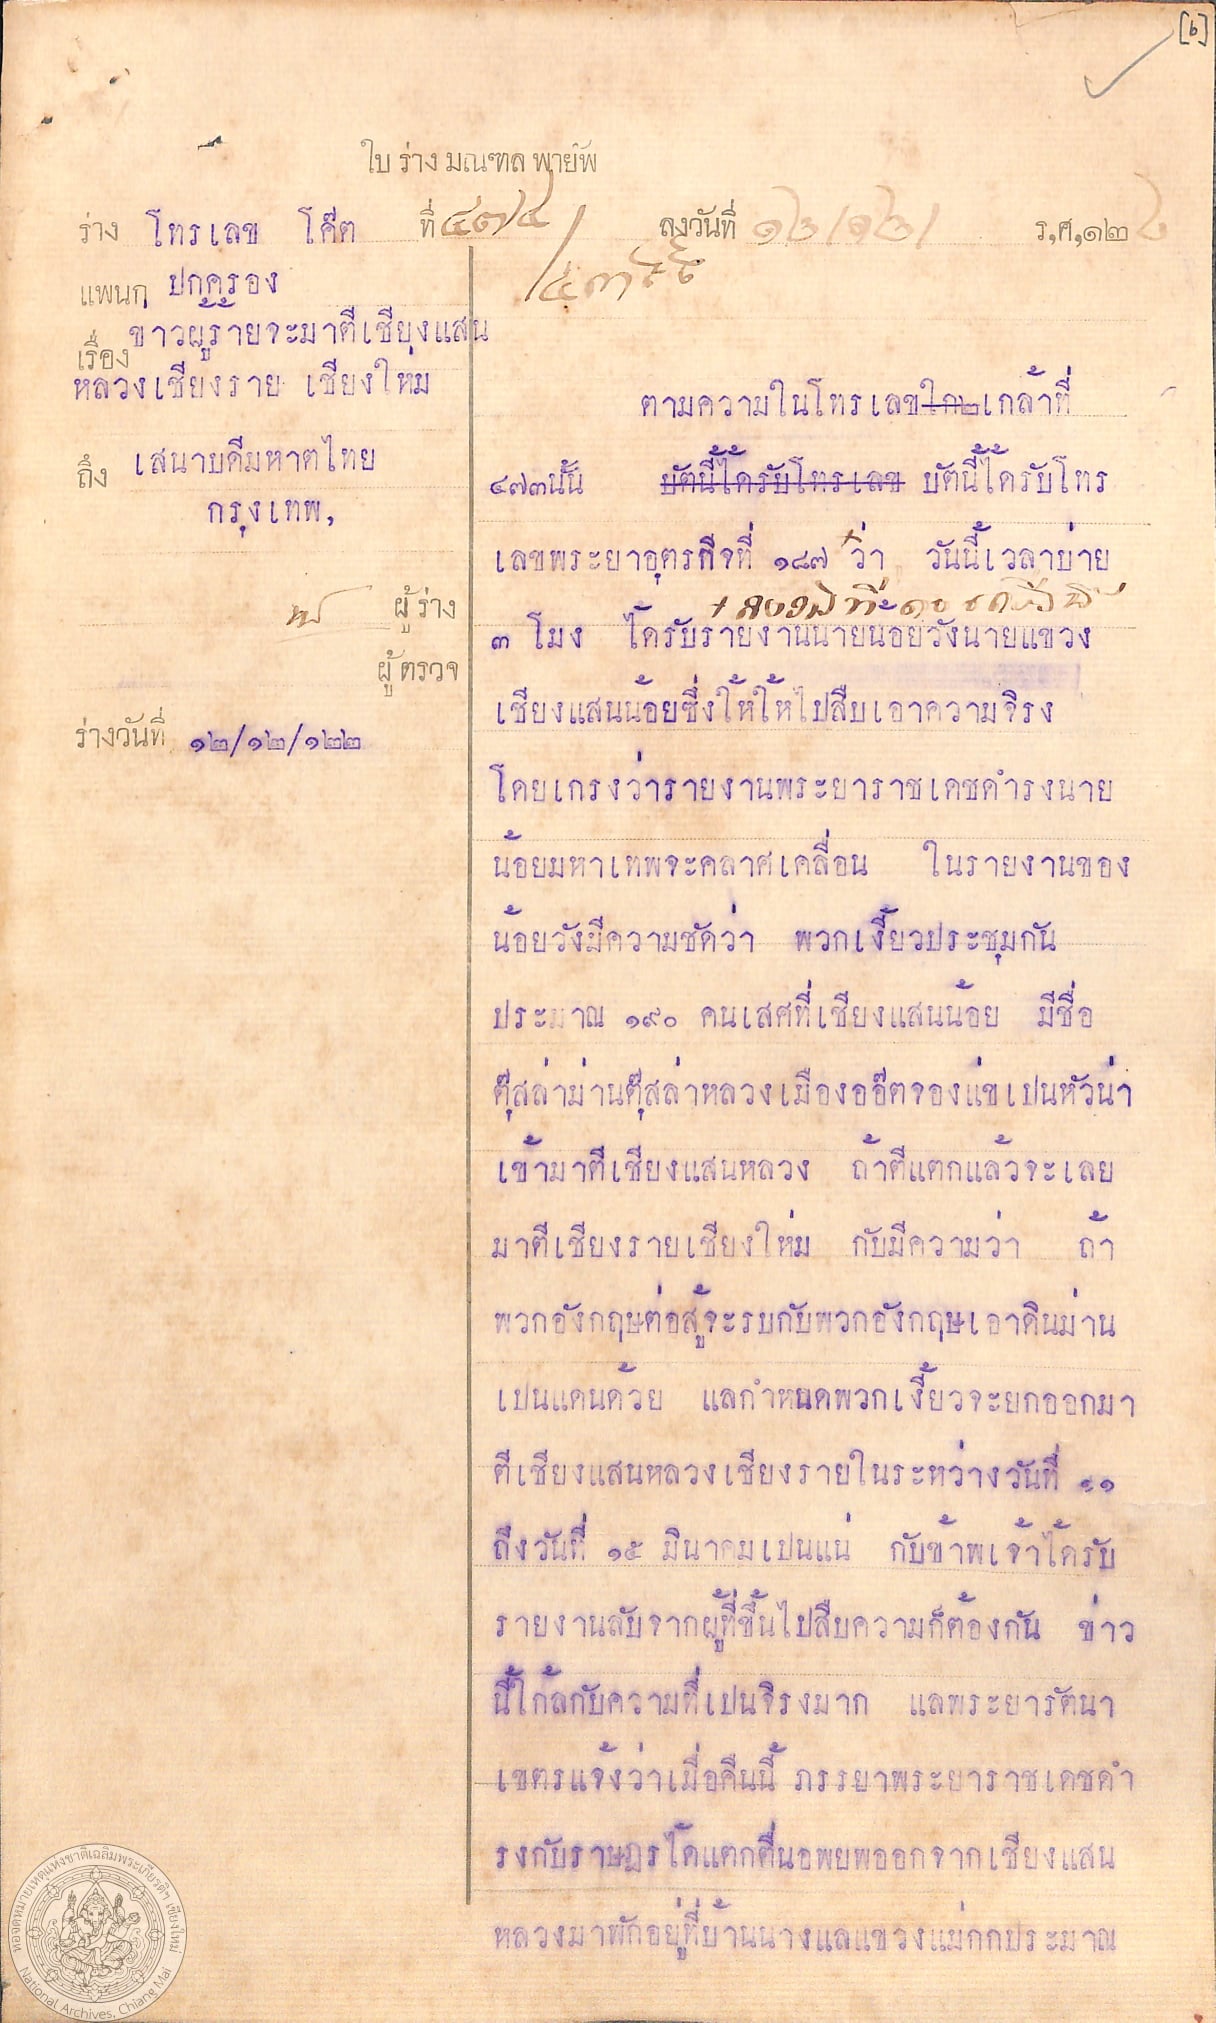 [๖]
ใบ ร่าง มณฑล พายัพ
ร่าง โทรเลข โค๊ต ที่ ๔๗๔/ ลงวันที่ ๑๒/๑๒/ ร,ศ,๑๒๒
แพนก ปกครอง
เรื่อง ขาวผู้ร้ายจะมาตีเชียงแสน
หลวงเชียงราย เชียงใหม่
ถึง เสนาบดีมหาดไทย
กรุงเทพ,
ผู้ ร่าง
ผู้ ตรวจ
ร่างวันที่ ๑๒/๑๒/๑๒๒
ตามความในโทรเลขใก๒เกล้าที่
๔๗๓นั้น บัดนี้ได้รับโทรเลข บัดนี้ได้รับโทร
เลขพระยาอุตรกิจที่ ๑๘๗ ว่า วันนี้เวลาบ่าย
๓ โมง ได้รับรายงานนายน้อยวังนายแขวง
เชียงแสนน้อยซึ่งให้ให้ไปสืบเอาความจริง
โดยเกรงว่ารายงานพระยาราชเดชดำรงนาย
น้อยมหาเทพจะคลาศเคลื่อน ในรายงานของ
น้อยวังมีความชัดว่า พวกเงี้ยวประชุมกัน
ประมาณ ๑๙๐ คนเสศที่เชียงแสนน้อย มีชื่อ
ตุ๊สล่าม่านตุ๊สล่าหลวงเมืองออ๊ตจองแข่เปนหัวน่า
เข้ามาตีเชียงแสนหลวง ถ้าตีแตกแล้วจะเลย
มาตีเชียงรายเชียงใหม่ กับมีความว่า ถ้า
พวกอังกฤษต่อสู้จะรบกับพวกอังกฤษเอาดินม่าน
เปนแดนด้วย แลกำหนดพวกเงี้ยวจะยกออกมา
ตีเชียงแสนหลวงเชียงรายในระหว่างวันที่ ๑๑
ถึงวันที่ ๑๕ มีนาคมเปนแน่ กับข้าพเจ้าได้รับ
รายงานลับจากผู้ที่ขึ้นไปสืบความก็ต้องกัน ข่าว
นี้ใกล้กับความที่เปนจริงมาก แลพระยารัตนา
เขตรแจ้งว่าเมื่อคืนนี้ ภรรยาพระยาราชเดชดำ
รงกับราษฎรได้แตกตื่นอพยพออกจากเชียงแสน
หลวงมาพักอยู่ที่บ้านนางแลแขวงแม่กกประมาณ
หอจดหมายเหตุแห่งชาติเฉลิมพระเกียรติฯ เชียงใหม่
National Archives, Chiang Mai